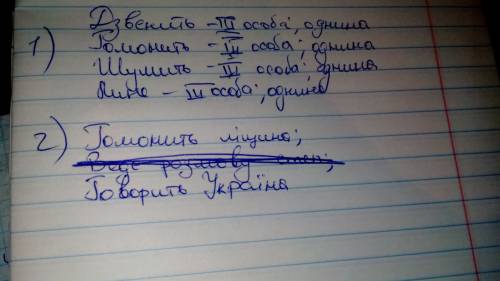 1) Дзвенить - III особа; однина
Гомонить - III особа; однина
Шумить - III особа; однина
Лине - III особа; однина
2) Гомонить ліщина;
Веде розмову степ;
Говорить Україна